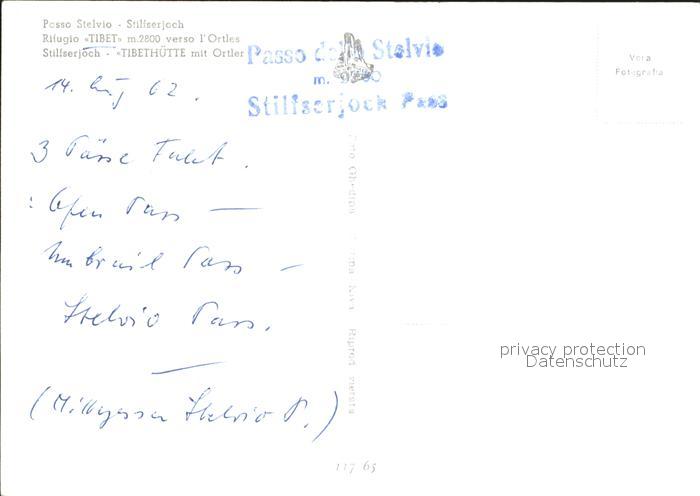 Passo Stelvio - Stilfserjoch
Rifugio «TIBET» m.2800 verso l'Ortles
Stilfserjoch - «TIBETHÜTTE mit Ortler
Passo dello Stelvio
m.
Stilfserjoch Pass
Vera
Fotografia
14. Aug 62.
3 Pässe Fahrt.
: Ofen Pass —
Umbrail Pass —
Stelvio Pass.
(Mittagessen Stelvio P.)
Riprod. vietata
117 65
privacy protection
Datenschutz